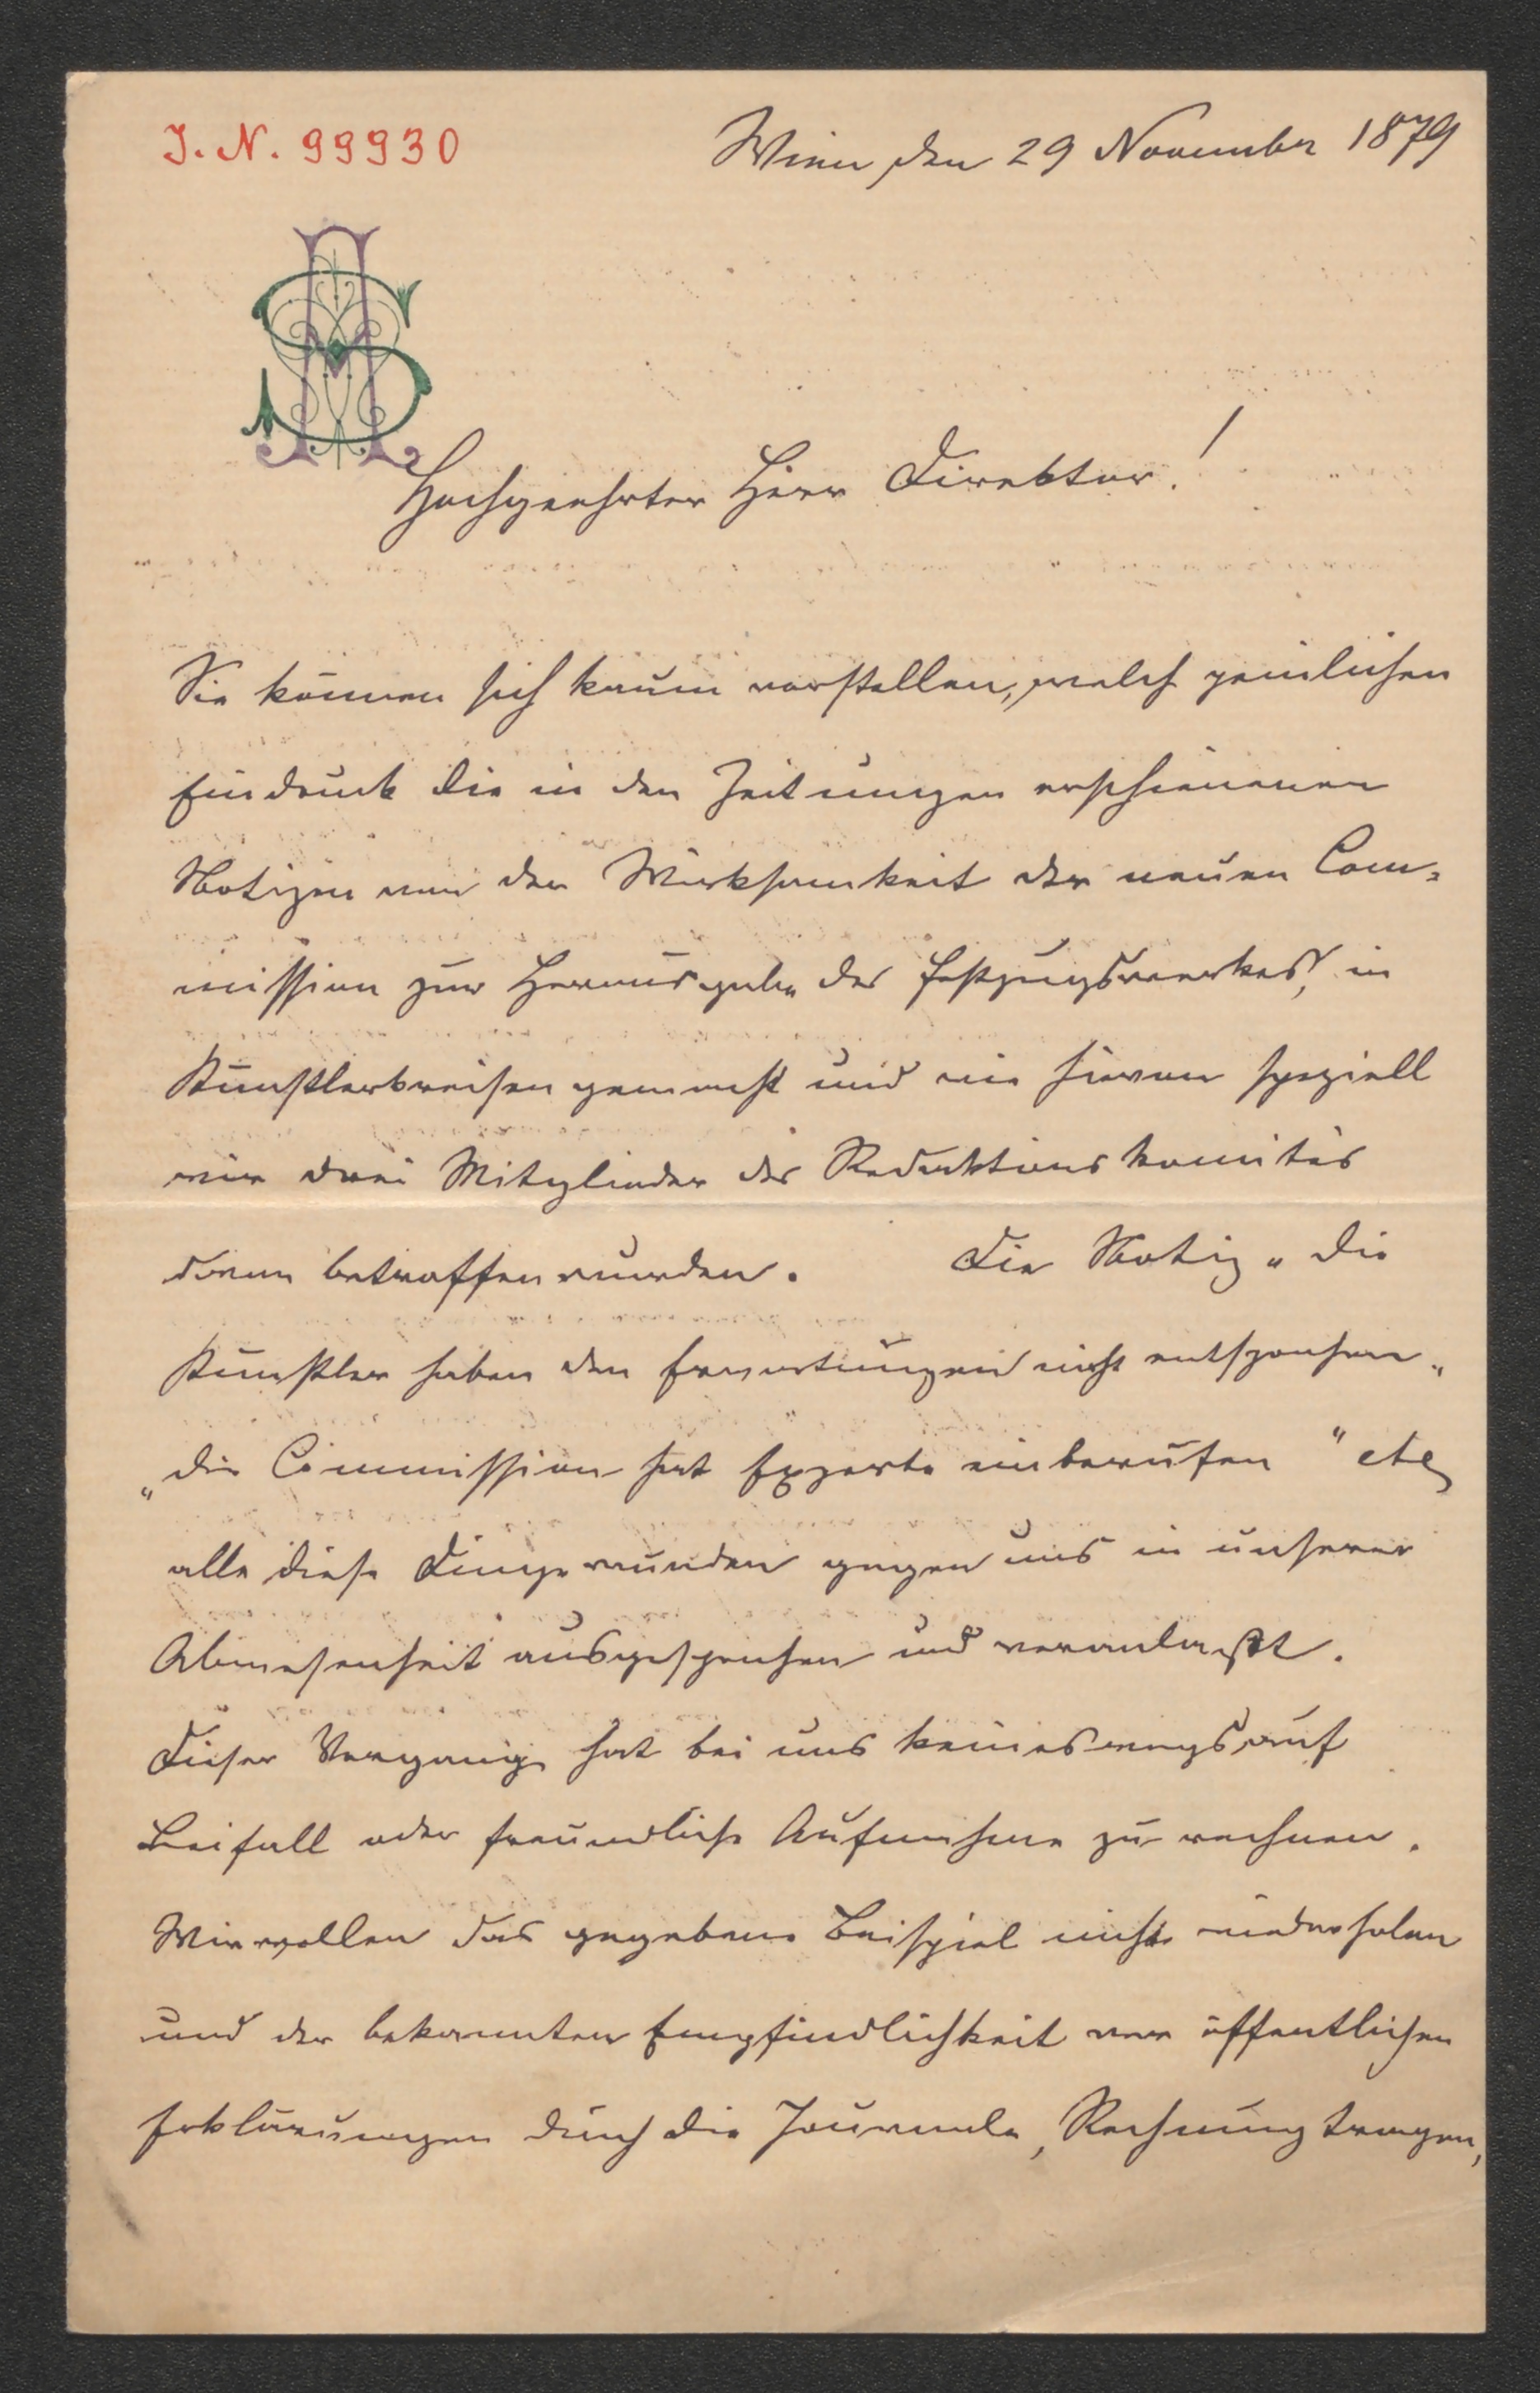 I. N. 99930
Wien den 29 November 1879
Hochgeehrter Herr Direktor!
Sie können sich kaum vorstellen, welch peinlichen
Eindruck die in den Zeitungen erschienenen
Notizen von der Wirksamkeit der neuen Com-
mission zur Herausgabe des Festzugswerkes, in
Künstlerkreisen gemacht und wie hievon speziell
wir drei Mitglieder des Redaktionskomités
davon betroffen wurden. Die Notiz „Die
Künstler haben den Erwartungen nicht entsprochen"
„die Commission hat Experte einberufen" etc
alle diese Dinge wurden gegen uns in unserer
Abwesenheit ausgesprochen und veranlaßt.
Dieser Vorgang hat bei uns keineswegs auf
Beifall oder freundliche Aufnahme zu rechnen.
Wir wollen das gegebene Beispiel nicht wiederholen
und der bekannten Empfindlichkeit vor öffentlichen
Erklärungen durch die Journale, Rechnung tragen,